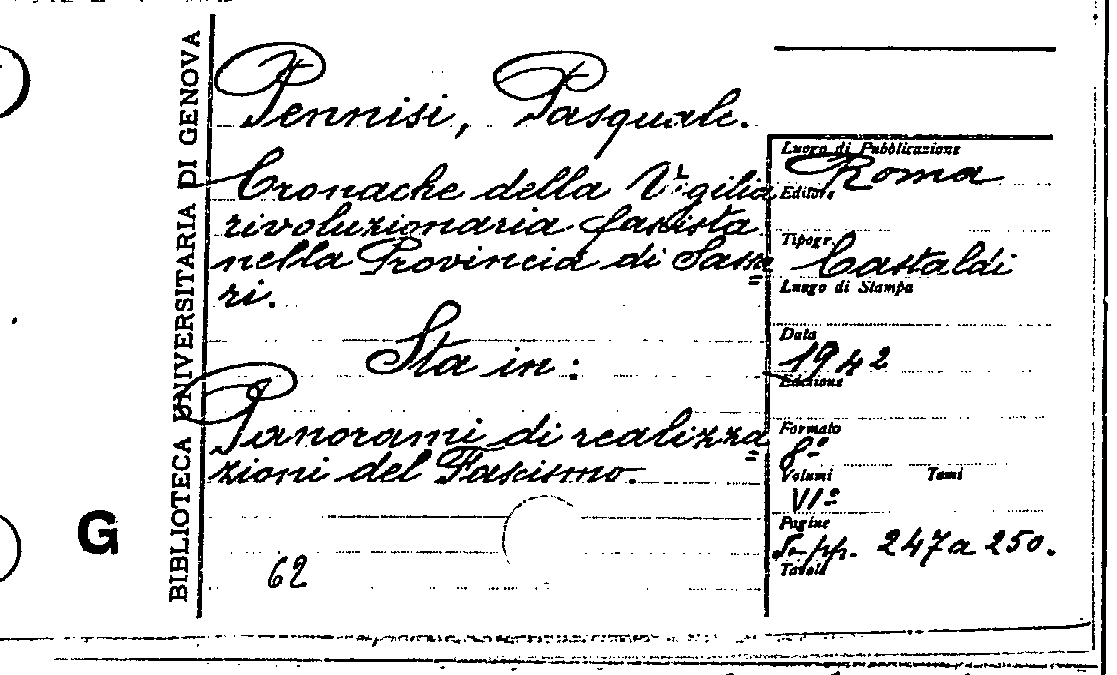 BIBLIOTECA UNIVERSITARIA DI GENOVA
G
Pennisi, Pasquale.
Cronache della Vigilia
rivoluzionaria fascista
nella Provincia di Sass=
ri.
Sta in:
Panorami di realizza=
zioni del Fascismo.
62
Luogo di Pubblicazione
Roma
Editore
Tipogr.
Castaldi
Luogo di Stampa
Data
1942
Edizione
Formato
8º
Volumi Tomi
VIº
Pagine
pp. 247 a 250.
Tavole